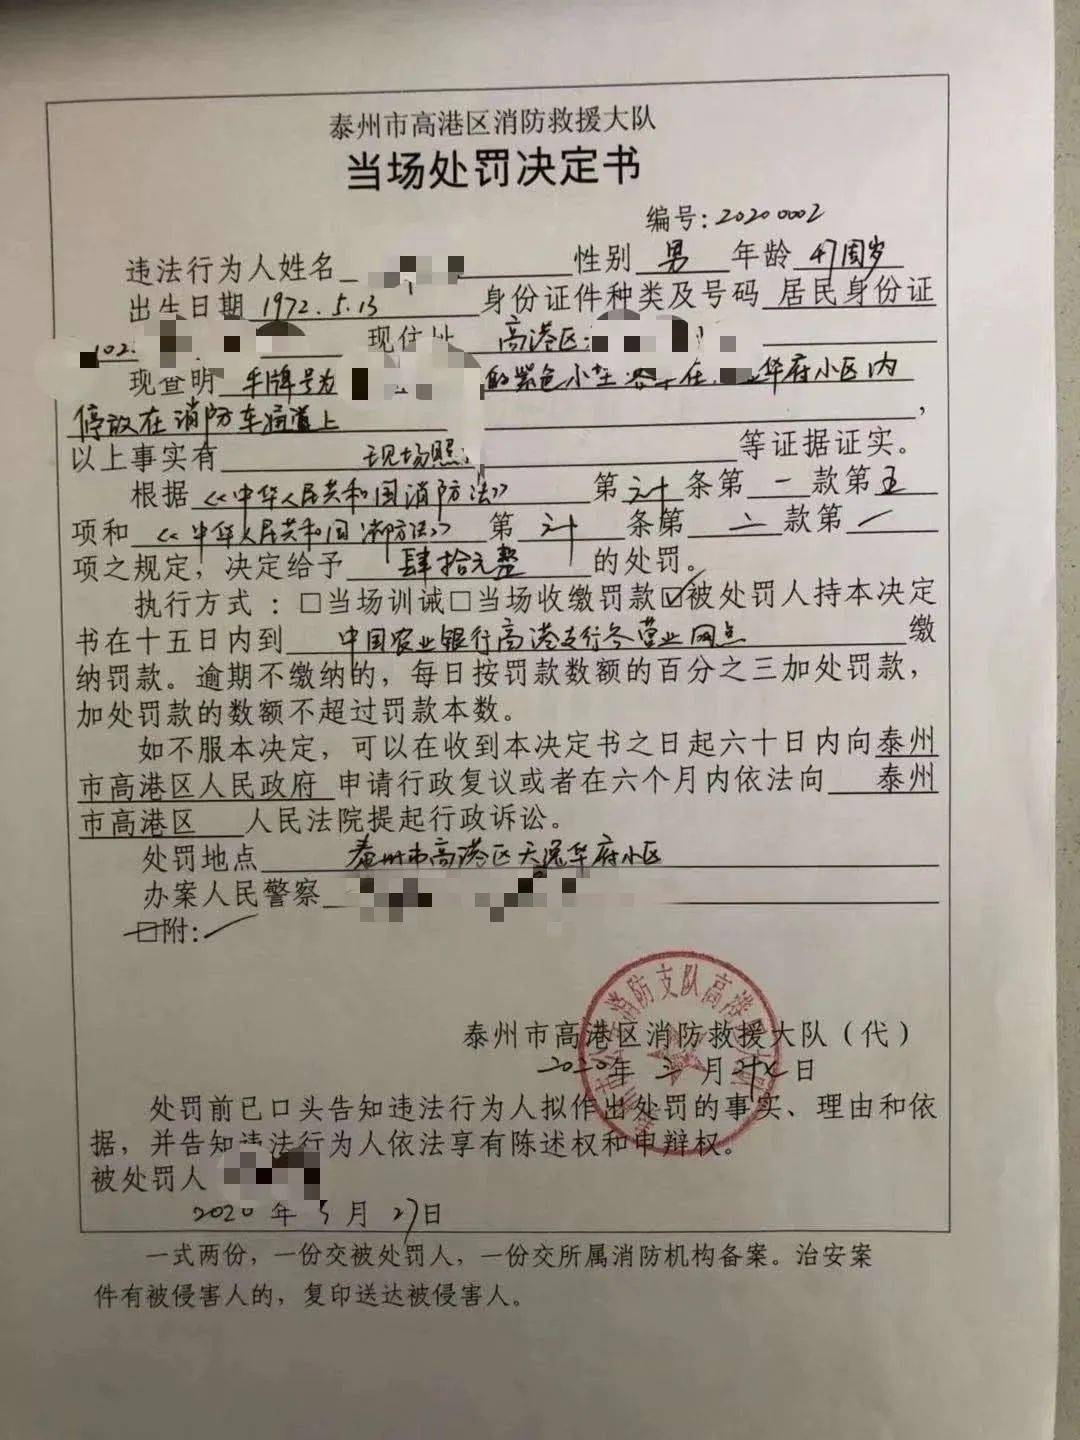 泰州市高港区消防救援大队
当场处罚决定书
编号：20200002
违法行为人姓名 性别 男 年龄 47周岁
出生日期 1972.5.13 身份证件种类及号码 居民身份证
102. 现住址 高港区
现查明 车牌号为 的紫色小型 在 华府小区内
停放在消防车通道上，
以上事实有 现场照 等证据证实。
根据《中华人民共和国消防法》第 六十 条第 一 款第 五
项和《中华人民共和国消防法》第 六十 条第 二 款第 /
项之规定，决定给予 肆拾元整 的处罚。
执行方式：□当场训诫□当场收缴罚款☑被处罚人持本决定
书在十五日内到 中国农业银行高港支行各营业网点 缴
纳罚款。逾期不缴纳的，每日按罚款数额的百分之三加处罚款，
加处罚款的数额不超过罚款本数。
如不服本决定，可以在收到本决定书之日起六十日内向泰州
市高港区人民政府 申请行政复议或者在六个月内依法向 泰州
市高港区 人民法院提起行政诉讼。
处罚地点 泰州市高港区天 华府小区
办案人民警察
□附：/
消防支队高港区大队
泰州市高港区消防救援大队（代）
2020年 三 月 廿七 日
处罚前已口头告知违法行为人拟作出处罚的事实、理由和依
据，并告知违法行为人依法享有陈述权和申辩权。
被处罚人
2020 年 3 月 27日
一式两份，一份交被处罚人，一份交所属消防机构备案。治安案
件有被侵害人的，复印送达被侵害人。